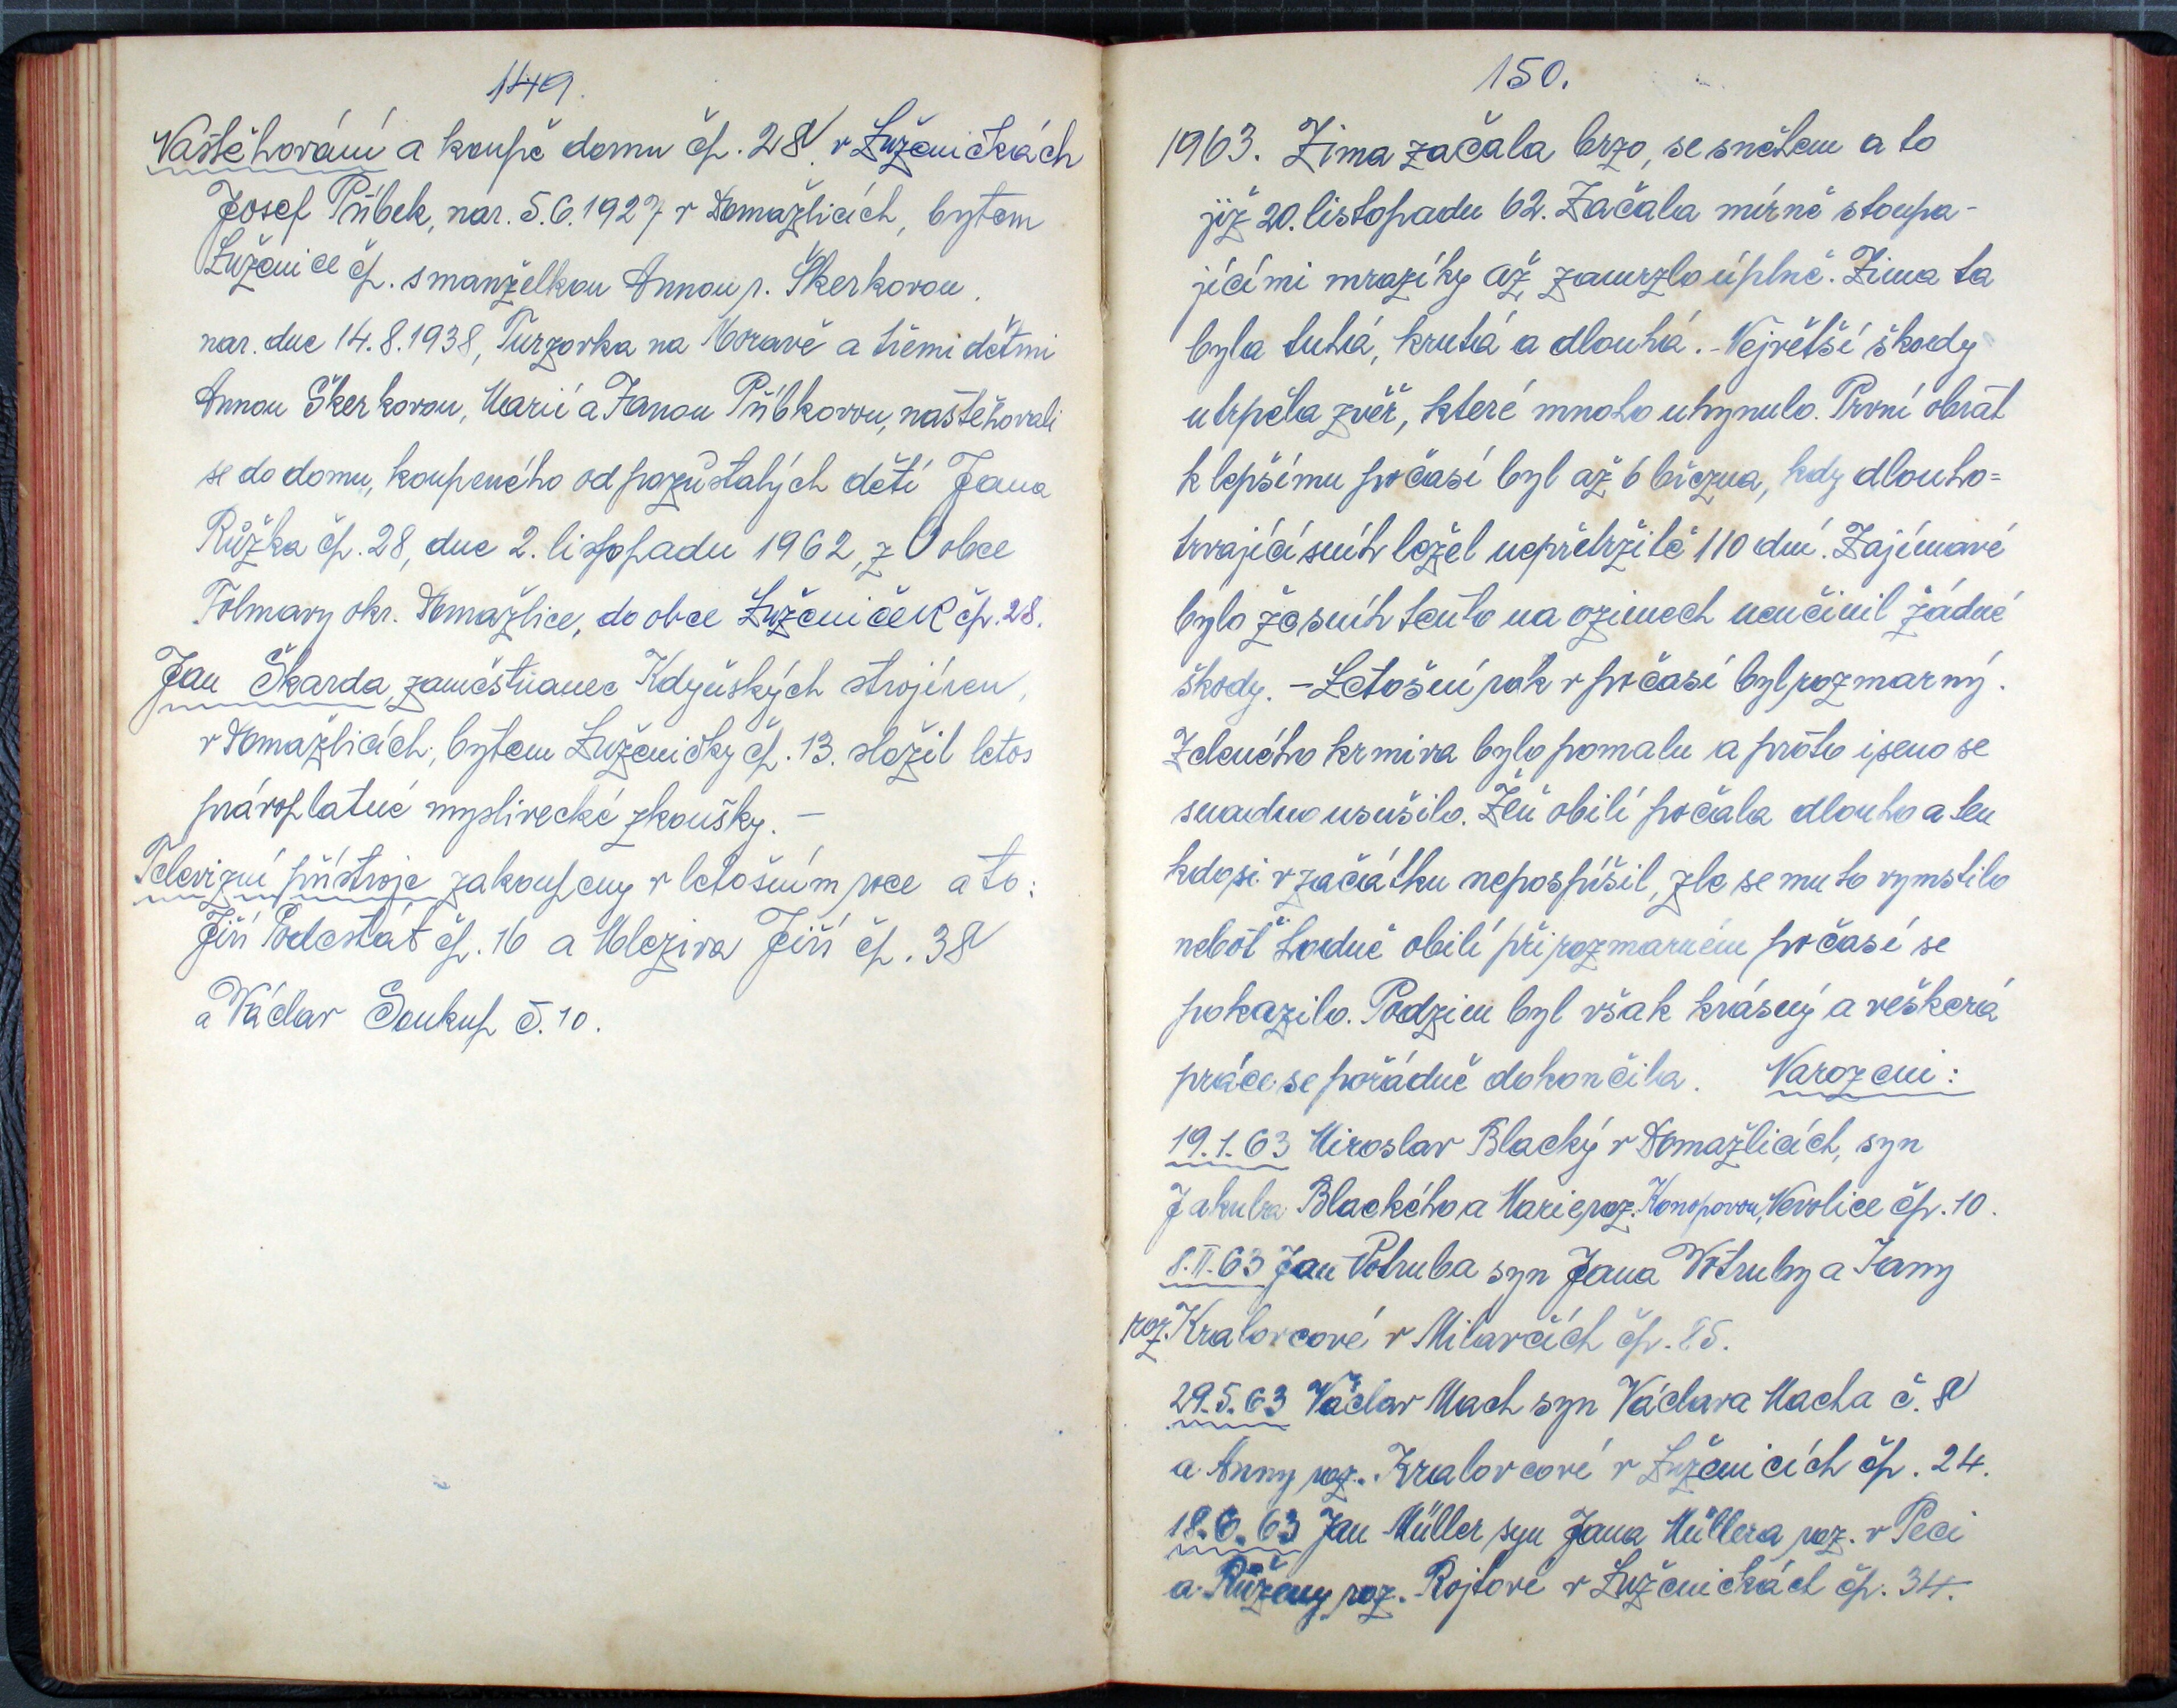 149.
Nastěhování a koupě domu čp. 28. v Luženičkách
Josef Přibek, nar. 5.6.1927 v Domažlicích, bytem
Luženice čp. s manželkou Annou r. Škerkovou.
nar. dne 14.8.1938, Turzovka na Moravě a třemi dětmi
Annou Škerkovou, Marií a Janou Přibkovou, nastěhovali
se do domu, koupeného od pozůstalých dětí Jana
Růžka čp. 28, dne 2. listopadu 1962, z obce
Folmavy okr. Domažlice, do obce Luženiček čp. 28.
Jan Škarda, zaměstnanec Kdyňských strojíren,
v Domažlicích, bytem Luženičky čp. 13. složil letos
právoplatné myslivecké zkoušky. –
Televizní přístroje zakoupeny v letošním roce a to:
Jiří Podestát čp. 16 a Meleziva Jiří čp. 38
a Václav Soukup č. 10.
150.
1963. Zima začala brzo, se sněhem a to
již 20. listopadu 62. Začala mírně stoupa-
jícími mrazíky až zamrzlo úplně. Zima ta
byla tuhá, krutá a dlouhá. – Největší škody
utrpěla zvěř, které mnoho uhynulo. První obrat
k lepšímu počasí byl až 6 března, kdy dlouho=
trvající sníh ležel nepřetržitě 110 dní. Zajímavé
bylo že sníh tento na ozimech neučinil žádné
škody. – Letošní rok v počasí byl rozmarný.
Zeleného krmiva bylo pomalu a proto i seno se
snadno usušilo. Žeň obilí počala dlouho a ten
kdo si v začátku nepospíšil, zle se mu to vymstilo
neboť hodně obilí při rozmarném počasí se
pokazilo. Podzim byl však krásný a veškerá
práce se pořádně dokončila. Narozeni:
19.1.63 Miroslav Blacký v Domažlicích, syn
Jakuba Blackého a Marie roz. Konopovou, Nevolice čp. 10.
8.II.63 Jan Votruba syn Jana Votruby a Jany
roz. Kralovcové v Milavčích čp. 85.
29.5.63 Václav Mach syn Václava Macha č. 8
a Anny roz. Kralovcové v Luženicích čp. 24.
18.6.63 Jan Müller syn Jana Müllera roz. v Peci
a Růženy roz. Rojtové v Luženičkách čp. 34.